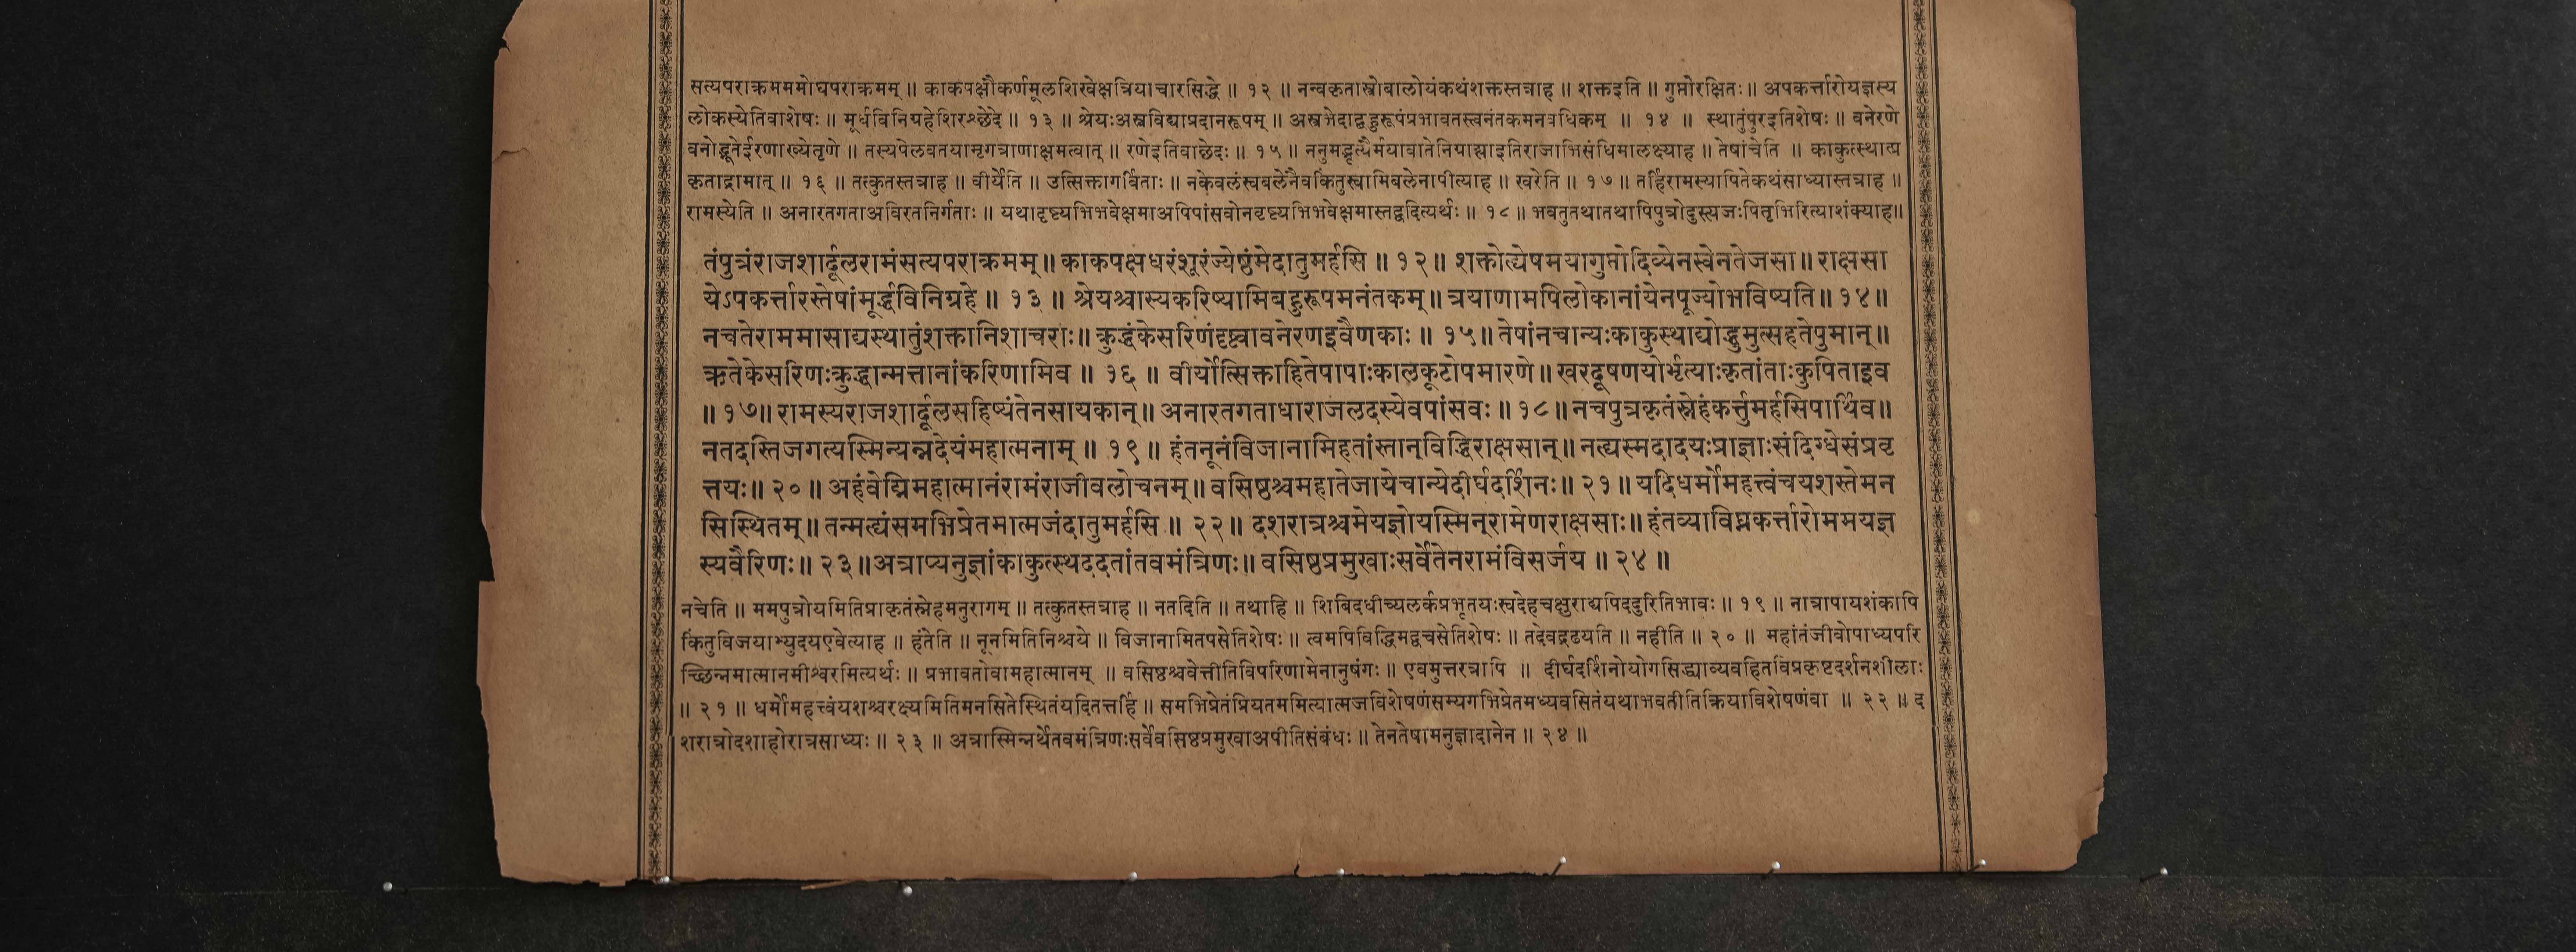 सत्यपराक्रमममोघपराक्रमम् ॥ काकपक्षौकर्णमूलशिखेक्षत्रियाचारसिद्धे ॥ १२ ॥ नन्वकृतास्त्रोबालोयंकथंशक्तस्तत्राह ॥ शक्तइति ॥ गुप्तोरक्षितः ॥ अपकर्त्तारोयज्ञस्य
लोकस्येतिवाशेषः ॥ मूर्धविनिग्रहेशिरश्छेदे ॥ १३ ॥ श्रेयःअस्त्रविद्याप्रदानरूपम् ॥ अस्त्रभेदाद्बहुरूपंप्रभावतस्त्वनंतकमनवधिकम् ॥ १४ ॥ स्थातुंपुरइतिशेषः ॥ वनेरणे
वनोद्भूतेईरणाख्येतृणे ॥ तस्यपेलवतयामृगत्राणाक्षमत्वात् ॥ रणेइतिवाछेदः ॥ १५ ॥ ननुमद्भृत्यैर्मयावातेनिग्राह्याइतिराजाभिसंधिमालक्ष्याह ॥ तेषांचेति ॥ काकुत्स्थात्प्र
कृताद्रामात् ॥ १६ ॥ तत्कुतस्तत्राह ॥ वीर्येति ॥ उत्सिक्तागर्विताः ॥ नकेवलंस्वबलेनैवकिंतुस्वामिबलेनापीत्याह ॥ खरेति ॥ १७ ॥ तर्हिरामस्यापितेकथंसाध्यास्तत्राह ॥
रामस्येति ॥ अनारतगताअविरतनिर्गताः ॥ यथावृष्ट्यभिभवेक्षमाअपिपांसवोनवृष्ट्यभिभवेक्षमास्तद्वदित्यर्थः ॥ १८ ॥ भवतुतथातथापिपुत्रोदुस्त्यजःपितृभिरित्याशंक्याह॥
तंपुत्रंराजशार्दूलरामंसत्यपराक्रमम् ॥ काकपक्षधरंशूरंज्येष्ठंमेदातुमर्हसि ॥ १२ ॥ शक्तोह्येषमयागुप्तोदिव्येनस्वेनतेजसा ॥ राक्षसा
येऽपकर्त्तारस्तेषांमूर्द्धविनिग्रहे ॥ १३ ॥ श्रेयश्चास्यकरिष्यामिबहुरूपमनंतकम् ॥ त्रयाणामपिलोकानांयेनपूज्योभविष्यति ॥ १४ ॥
नचतेराममासाद्यस्थातुंशक्तानिशाचराः ॥ क्रुद्धंकेसरिणंदृष्ट्वावनेरणइवैणकाः ॥ १५ ॥ तेषांनचान्यःकाकुस्थाद्योद्धुमुत्सहतेपुमान् ॥
ऋतेकेसरिणःक्रुद्धान्मत्तानांकरिणामिव ॥ १६ ॥ वीर्योत्सिक्ताहितेपापाःकालकूटोपमारणे ॥ खरदूषणयोर्भृत्याःकृतांताःकुपिताइव
॥ १७ ॥ रामस्यराजशार्दूलसहिष्यंतेनसायकान् ॥ अनारतगताधाराजलदस्येवपांसवः ॥ १८ ॥ नचपुत्रकृतंस्नेहंकर्त्तुमर्हसिपार्थिव ॥
नतदस्तिजगत्यस्मिन्यन्नदेयंमहात्मनाम् ॥ १९ ॥ हंतनूनंविजानामिहतांस्तान्विद्धिराक्षसान् ॥ नह्यस्मदादयःप्राज्ञाःसंदिग्धेसंप्रवृ
त्तयः ॥ २० ॥ अहंवेद्मिमहात्मानंरामंराजीवलोचनम् ॥ वसिष्ठश्चमहातेजायेचान्येदीर्घदर्शिनः ॥ २१ ॥ यदिधर्मोमहत्त्वंचयशस्तेमन
सिस्थितम् ॥ तन्मह्यंसमभिप्रेतमात्मजंदातुमर्हसि ॥ २२ ॥ दशरात्रश्चमेयज्ञोयस्मिन्रामेणराक्षसाः ॥ हंतव्याविघ्नकर्त्तारोममयज्ञ
स्यवैरिणः ॥ २३ ॥ अत्राप्यनुज्ञांकाकुत्स्थददतांतवमंत्रिणः ॥ वसिष्ठप्रमुखाःसर्वेतेनरामंविसर्जय ॥ २४ ॥
नचेति ॥ ममपुत्रोयमितिप्राकृतंस्नेहमनुरागम् ॥ तत्कुतस्तत्राह ॥ नतदिति ॥ तथाहि ॥ शिबिदधीच्यलर्कप्रभृतयःस्वदेहचक्षुराद्यपिददुरितिभावः ॥ १९ ॥ नात्रापायशंकापि
किंतुविजयाभ्युदयएवेत्याह ॥ हंतेति ॥ नूनमितिनिश्चये ॥ विजानामितपसेतिशेषः ॥ त्वमपिविद्धिमद्वचसेतिशेषः ॥ तदेवद्रढयति ॥ नहीति ॥ २० ॥ महांतंजीवोपाध्यपरि
च्छिन्नमात्मानमीश्वरमित्यर्थः ॥ प्रभावतोवामहात्मानम् ॥ वसिष्ठश्चवेत्तीतिविपरिणामेनानुषंगः ॥ एवमुत्तरत्रापि ॥ दीर्घदर्शिनोयोगसिद्ध्याव्यवहितविप्रकृष्टदर्शनशीलाः
॥ २१ ॥ धर्मोमहत्त्वंयशश्चरक्ष्यमितिमनसितेस्थितंयदितत्तर्हि ॥ समभिप्रेतंप्रियतममित्यात्मजविशेषणंसम्यगभिप्रेतमध्यवसितंयथाभवतीतिक्रियाविशेषणंवा ॥ २२ ॥ द
शरात्रोदशाहोरात्रसाध्यः ॥ २३ ॥ अत्रास्मिन्नर्थेतवमंत्रिणःसर्वेवसिष्ठप्रमुखाअपीतिसंबंधः ॥ तेनतेषामनुज्ञादानेन ॥ २४ ॥